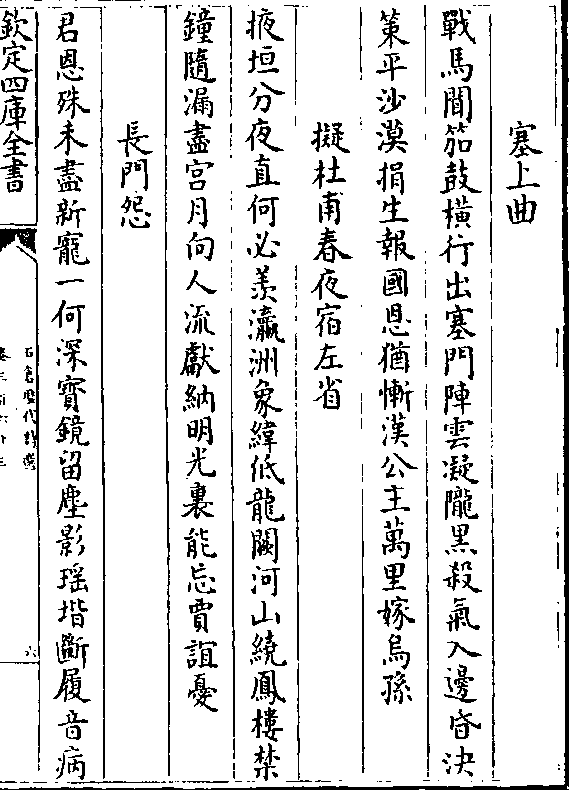 塞上曲
戰馬聞笳鼓橫行出塞門陣雲凝隴黑殺氣入邊昏決
策平沙漠捐生報國恩猶慚漢公主萬里嫁烏孫
擬杜甫春夜宿左省
掖垣分夜直何必羡瀛洲象緯低龍闕河山繞鳳樓禁
鐘隨漏盡宮月向人流獻納明光裏能忘賈誼憂
長門怨
君恩殊未盡新寵一何深寳鏡留塵影瑶堦斷履音病
欽定四庫全書
石倉歷代詩選
六